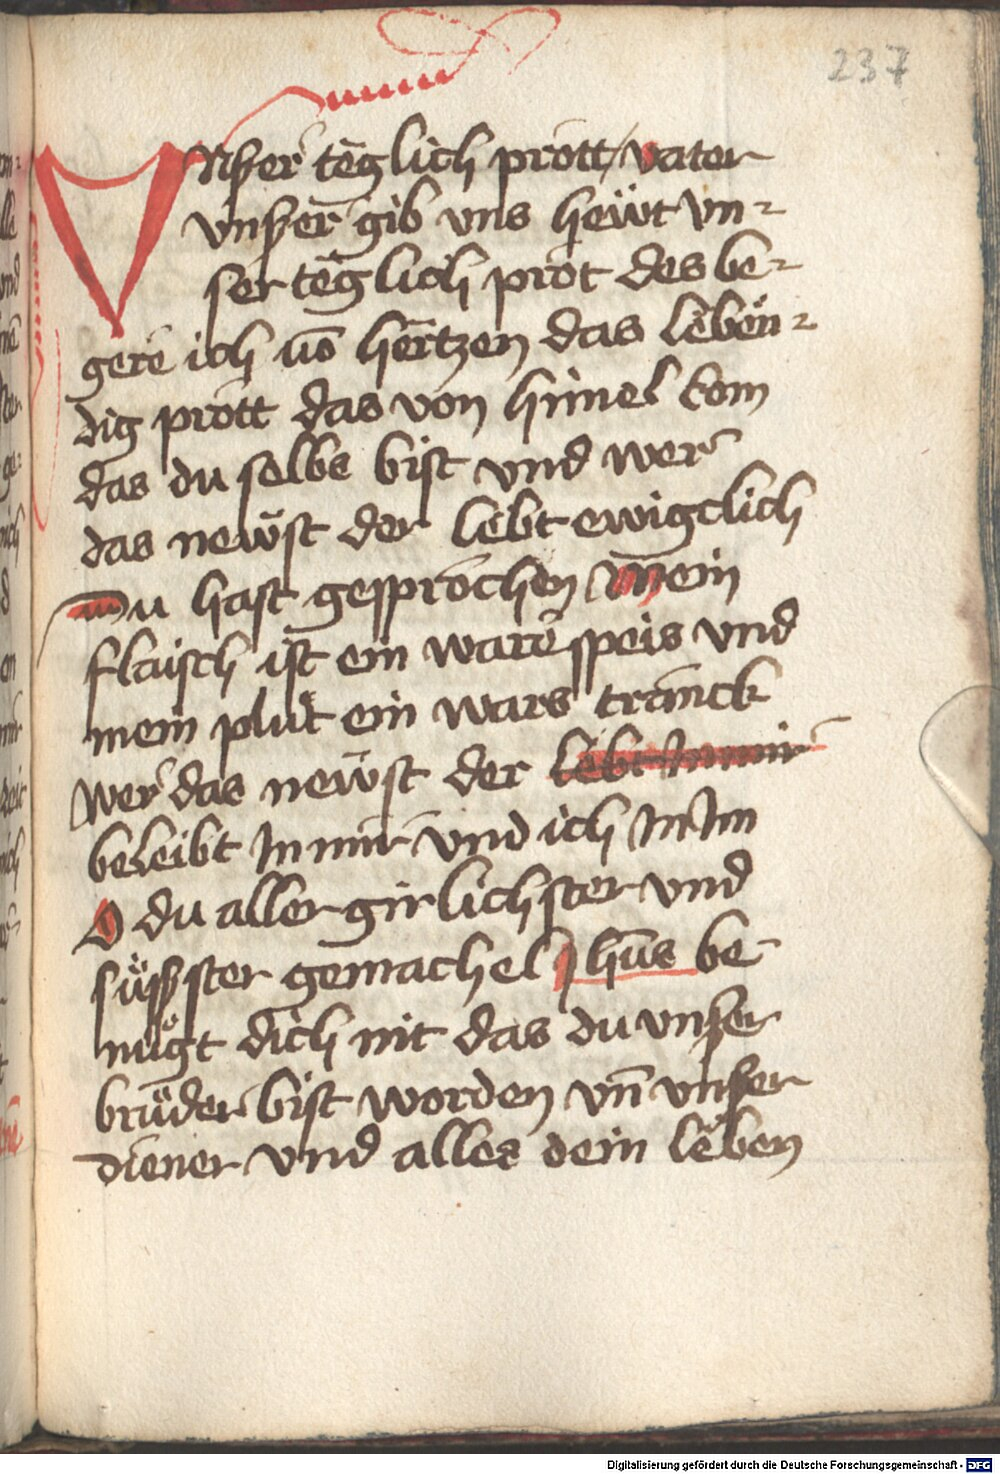 237
Vnßer teglich prott / vater
vnßer gib vns hewt vn-
ser teglich prot des be-
gere ich vō hertzen das leben-
dig prott das von himel kom
das du selbs bist vnd wer
das newst der lebt ewigclich
Du hast gesprochen Mein
flaisch ist ein ware speis vnd
mein plut ein wars tranck
wer das newst der lebt In mir
beleibt In mir vnd ich In Im
O du aller girlichster vnd
süßster gemachel Jhūs be
nügt dich nit das du vnßer
brüder bist worden vn̄ vnßer
diener vnd alles dein leben
Digitalisierung gefördert durch die Deutsche Forschungsgemeinschaft - DFG